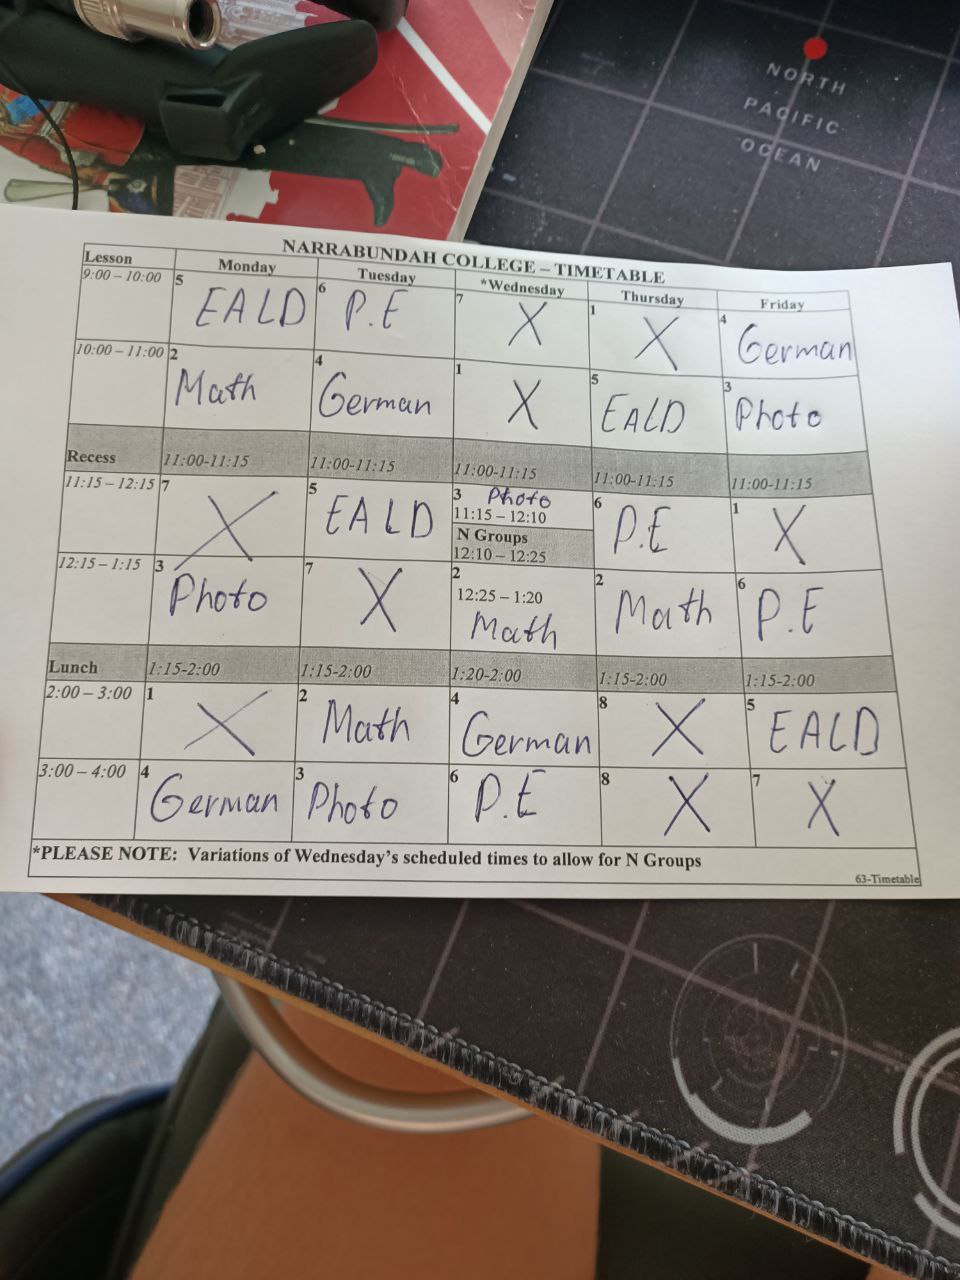 NORTH
PACIFIC
OCEAN
NARRABUNDAH COLLEGE – TIMETABLE
Lesson Monday Tuesday *Wednesday Thursday Friday
9:00 – 10:00 5 EALD 6 P.E 7 X 1 X 4 German
10:00 – 11:00 2 Math 4 German 1 X 5 EALD 3 Photo
Recess 11:00-11:15 11:00-11:15 11:00-11:15 11:00-11:15 11:00-11:15
11:15 – 12:15 7 X 5 EALD 3 Photo 6 P.E 1 X
11:15 – 12:10
N Groups
12:10 – 12:25
12:15 – 1:15 3 Photo 7 X 2 12:25 – 1:20 Math 2 Math 6 P.E
Lunch 1:15-2:00 1:15-2:00 1:20-2:00 1:15-2:00 1:15-2:00
2:00 – 3:00 1 X 2 Math 4 German 8 X 5 EALD
3:00 – 4:00 4 German 3 Photo 6 P.E 8 X 7 X
*PLEASE NOTE: Variations of Wednesday's scheduled times to allow for N Groups
63-Timetable